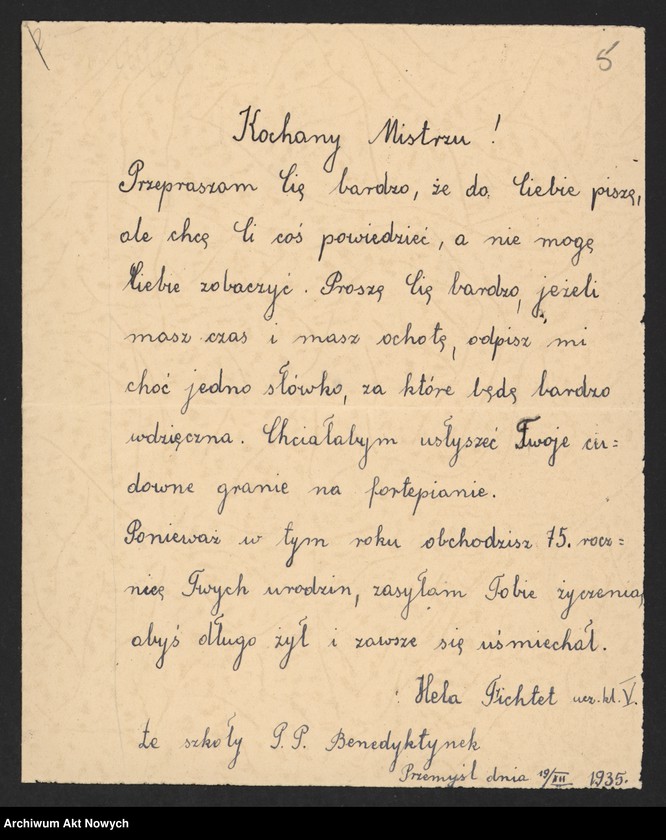 5
Kochany Mistrzu!
Przepraszam Cię bardzo, że do Ciebie piszę,
ale chcę Ci coś powiedzieć, a nie mogę
Ciebie zobaczyć. Proszę Cię bardzo, jeżeli
masz czas i masz ochotę, odpisz mi
choć jedno słówko, za które będę bardzo
wdzięczna. Chciałabym usłyszeć Twoje cu=
downe granie na fortepianie.
Ponieważ w tym roku obchodzisz 75. rocz=
nicę Twych urodzin, zasyłam Tobie życzenia,
abyś długo żył i zawsze się uśmiechał.
Hela Fichtet ucz. kl. V.
Ze szkoły P.P. Benedyktynek
Przemyśl dnia 19/XII 1935.
Archiwum Akt Nowych